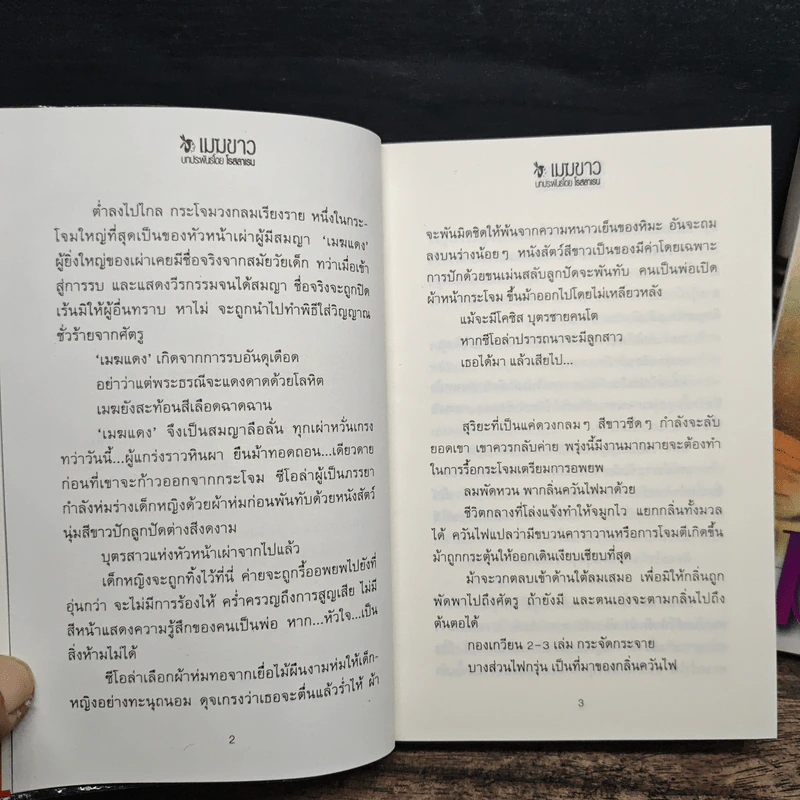 เมฆขาว
บทประพันธ์โดย โรสลาเรน
ต่ำลงไปไกล กระโจมวงกลมเรียงราย หนึ่งในกระ-
โจมใหญ่ที่สุดเป็นของหัวหน้าเผ่าผู้มีสมญา ‘เมฆแดง’
ผู้ยิ่งใหญ่ของเผ่าเคยมีชื่อจริงจากสมัยวัยเด็ก ทว่าเมื่อเข้า
สู่การรบ และแสดงวีรกรรมจนได้สมญา ชื่อจริงจะถูกปิด
เร้นมิให้ผู้อื่นทราบ หาไม่ จะถูกนำไปทำพิธีใส่วิญญาณ
ชั่วร้ายจากศัตรู
‘เมฆแดง’ เกิดจากการรบอันดุเดือด
อย่าว่าแต่พระธรณีจะแดงดาดด้วยโลหิต
เมฆยังสะท้อนสีเลือดฉาดฉาน
‘เมฆแดง’ จึงเป็นสมญาลือลั่น ทุกเผ่าหวั่นเกรง
ทว่าวันนี้...ผู้แกร่งราวหินผา ยืนม้าทอดถอน...เดียวดาย
ก่อนที่เขาจะก้าวออกจากกระโจม ซีโอล่าผู้เป็นภรรยา
กำลังห่มร่างเด็กหญิงด้วยผ้าห่มก่อนพันทับด้วยหนังสัตว์
นุ่มสีขาวปักลูกปัดต่างสีงดงาม
บุตรสาวแห่งหัวหน้าเผ่าจากไปแล้ว
เด็กหญิงจะถูกทิ้งไว้ที่นี่ ค่ายจะถูกรื้ออพยพไปยังที่
อุ่นกว่า จะไม่มีการร้องไห้ คร่ำครวญถึงการสูญเสีย ไม่มี
สีหน้าแสดงความรู้สึกของคนเป็นพ่อ หาก...หัวใจ...เป็น
สิ่งห้ามไม่ได้
ซีโอล่าเลือกผ้าห่มทอจากเยื่อไม้ผืนงามห่มให้เด็ก-
หญิงอย่างทะนุถนอม ดุจเกรงว่าเธอจะตื่นแล้วร่ำไห้ ผ้า
2
เมฆขาว
บทประพันธ์โดย โรสลาเรน
จะพันมิดชิดให้พ้นจากความหนาวเย็นของหิมะ อันจะถม
ลงบนร่างน้อยๆ หนังสัตว์สีขาวเป็นของมีค่าโดยเฉพาะ
การปักด้วยขนเม่นสลับลูกปัดจะพันทับ คนเป็นพ่อเปิด
ผ้าหน้ากระโจม ขึ้นม้าออกไปโดยไม่เหลียวหลัง
แม้จะมีโคซิส บุตรชายคนโต
หากซีโอล่าปรารถนาจะมีลูกสาว
เธอได้มา แล้วเสียไป...
สุริยะที่เป็นแค่ดวงกลมๆ สีขาวซีดๆ กำลังจะลับ
ยอดเขา เขาควรกลับค่าย พรุ่งนี้มีงานมากมายจะต้องทำ
ในการรื้อกระโจมเตรียมการอพยพ
ลมพัดหวน พากลิ่นควันไฟมาด้วย
ชีวิตกลางที่โล่งแจ้งทำให้จมูกไว แยกกลิ่นทั้งมวล
ได้ ควันไฟแปลว่ามีขบวนคาราวานหรือการโจมตีเกิดขึ้น
ม้าถูกกระตุ้นให้ออกเดินเงียบเชียบที่สุด
ม้าจะวกตลบเข้าด้านใต้ลมเสมอ เพื่อมิให้กลิ่นถูก
พัดพาไปถึงศัตรู ถ้ายังมี และตนเองจะตามกลิ่นไปถึง
ต้นตอได้
กองเกวียน 2-3 เล่ม กระจัดกระจาย
บางส่วนไฟกรุ่น เป็นที่มาของกลิ่นควันไฟ
3